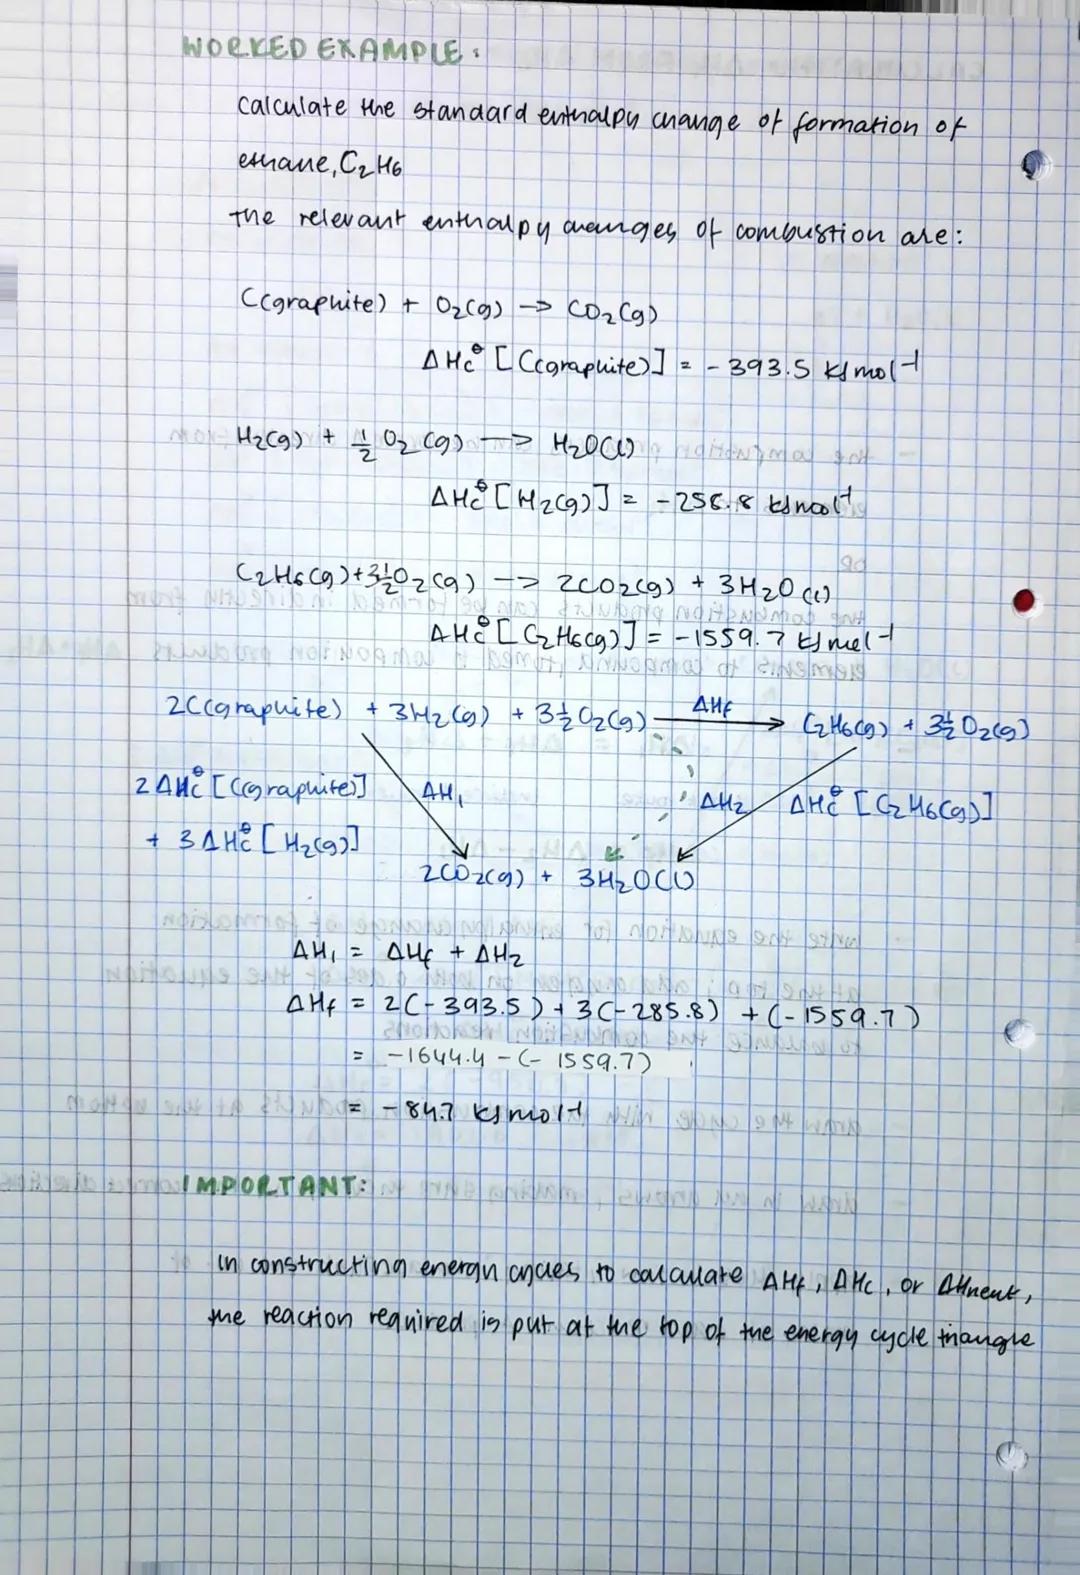 WORKED EXAMPLE:
calculate the standard enthalpy change of formation of
ethane, C₂H₆
the relevant enthalpy changes of combustion are:
C(graphite) + O₂(g) → CO₂(g)
ΔHc⦵ [C(graphite)] = -393.5 kJmol⁻¹
H₂(g) + ½ O₂(g) → H₂O(l)
ΔHc⦵ [H₂(g)] = -256.8 kJmol⁻¹
C₂H₆(g) + 3½O₂(g) → 2CO₂(g) + 3H₂O(l)
ΔHc⦵ [C₂H₆(g)] = -1559.7 kJmol⁻¹
2C(graphite) + 3H₂(g) + 3½O₂(g) ΔHf → C₂H₆(g) + 3½O₂(g)
2ΔHc⦵ [C(graphite)] ΔH₁ ΔH₂ ΔHc⦵ [C₂H₆(g)]
+ 3ΔHc⦵ [H₂(g)]
2CO₂(g) + 3H₂O(l)
ΔH₁ = ΔHf + ΔH₂
ΔHf = 2(-393.5) + 3(-285.8) + (-1559.7)
= -1644.4 - (-1559.7)
= -84.7 kJmol⁻¹
IMPORTANT:
in constructing energy cycles to calculate ΔHf, ΔHc, or ΔHneut,
the reaction required is put at the top of the energy cycle triangle